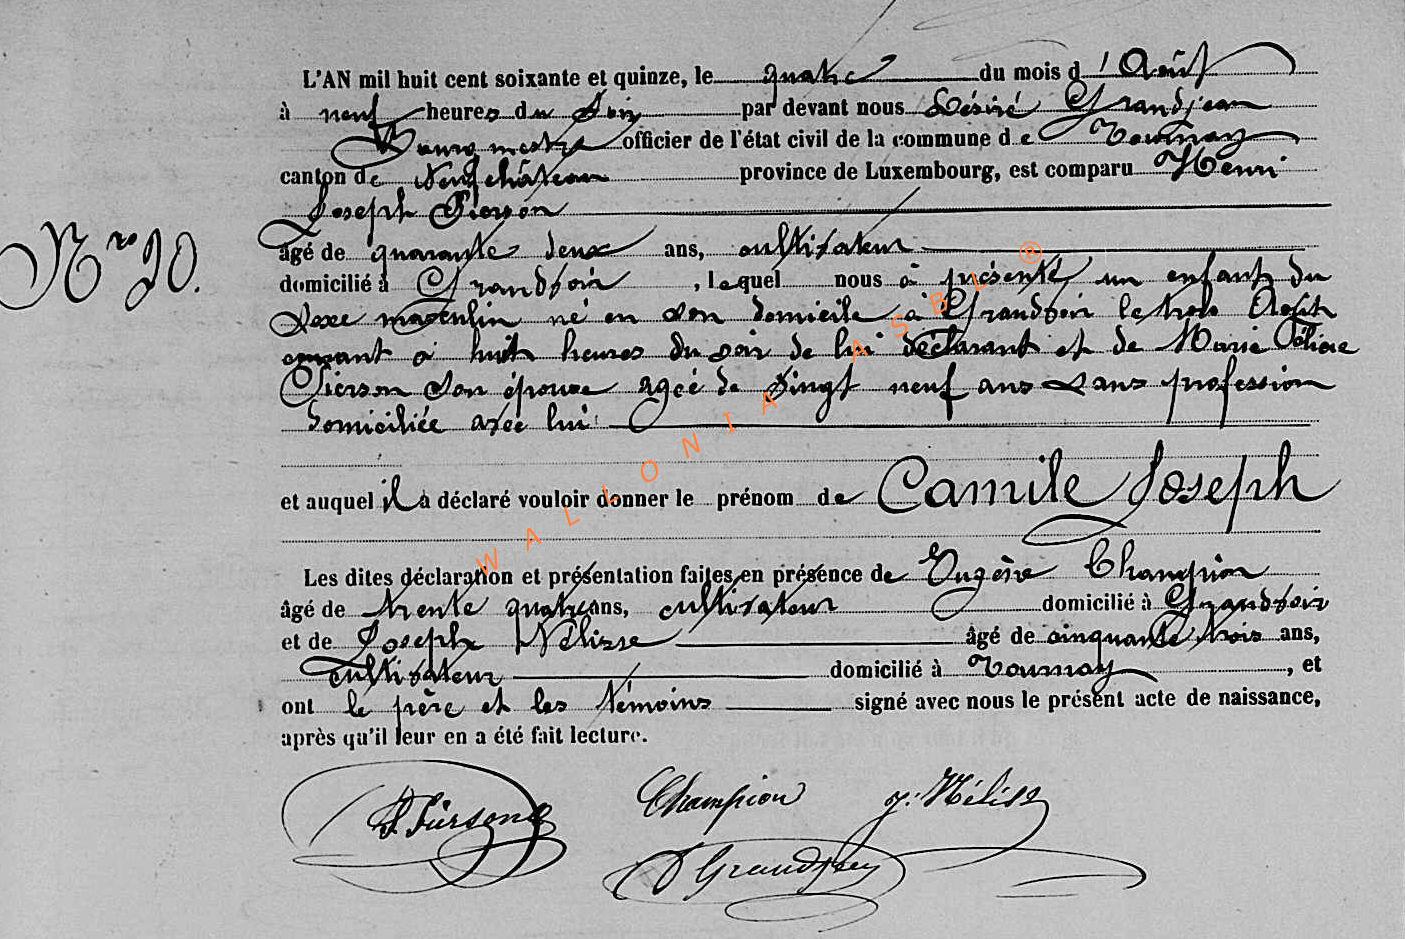 L'AN mil huit cent soixante et quinze, le quatre du mois d'Août
à neuf heures du Soir par devant nous Désiré Grandjean
Bourgmestre officier de l'état civil de la commune de Tournay
canton de Neufchâteau province de Luxembourg, est comparu Henri
Joseph Pierson
Nro 20.
âgé de quarante deux ans, cultivateur
domicilié à Grandvoir, lequel nous a présenté un enfant du
Sexe masculin né en son domicile à Grandvoir le trois Août
courant à huit heures du soir de lui déclarant et de Marie
Pierson son épouse agée de vingt neuf ans sans profession
domiciliée avec lui
et auquel il a déclaré vouloir donner le prénom de Camile Joseph
Les dites déclaration et présentation faites en présence de Eugène Champion
âgé de trente quatre ans, cultivateur domicilié à Grandvoir
et de Joseph Nélisse âgé de cinquante trois ans,
cultivateur domicilié à Tournay, et
ont le père et les témoins signé avec nous le présent acte de naissance,
après qu'il leur en a été fait lecture.
Champion J. Nélisse
D Grandjean
WALLONIA ASBL ®